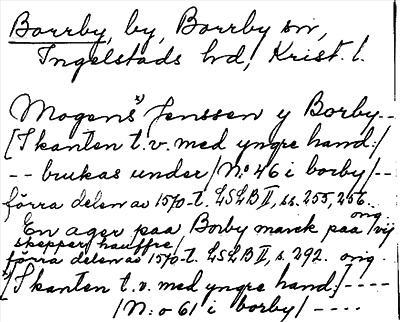 Borrby, by, Borrby sn,
Ingelstads hd, Krist. l.
Mogens Jenssen y Borby --
[I kanten t.v. med yngre hand:/
-- brukas under / No 46 i borby/--
förra delen av 1570-t. LSLB II, ss. 255, 256.
orig.
En ager paa Borby marck paa vij
skepper hauffre/
förra delen av 1570-t. LSLB II, s. 292. orig.
/[I kanten t.v. med yngre hand:/ ----
/N:o 61 i borby/ ----